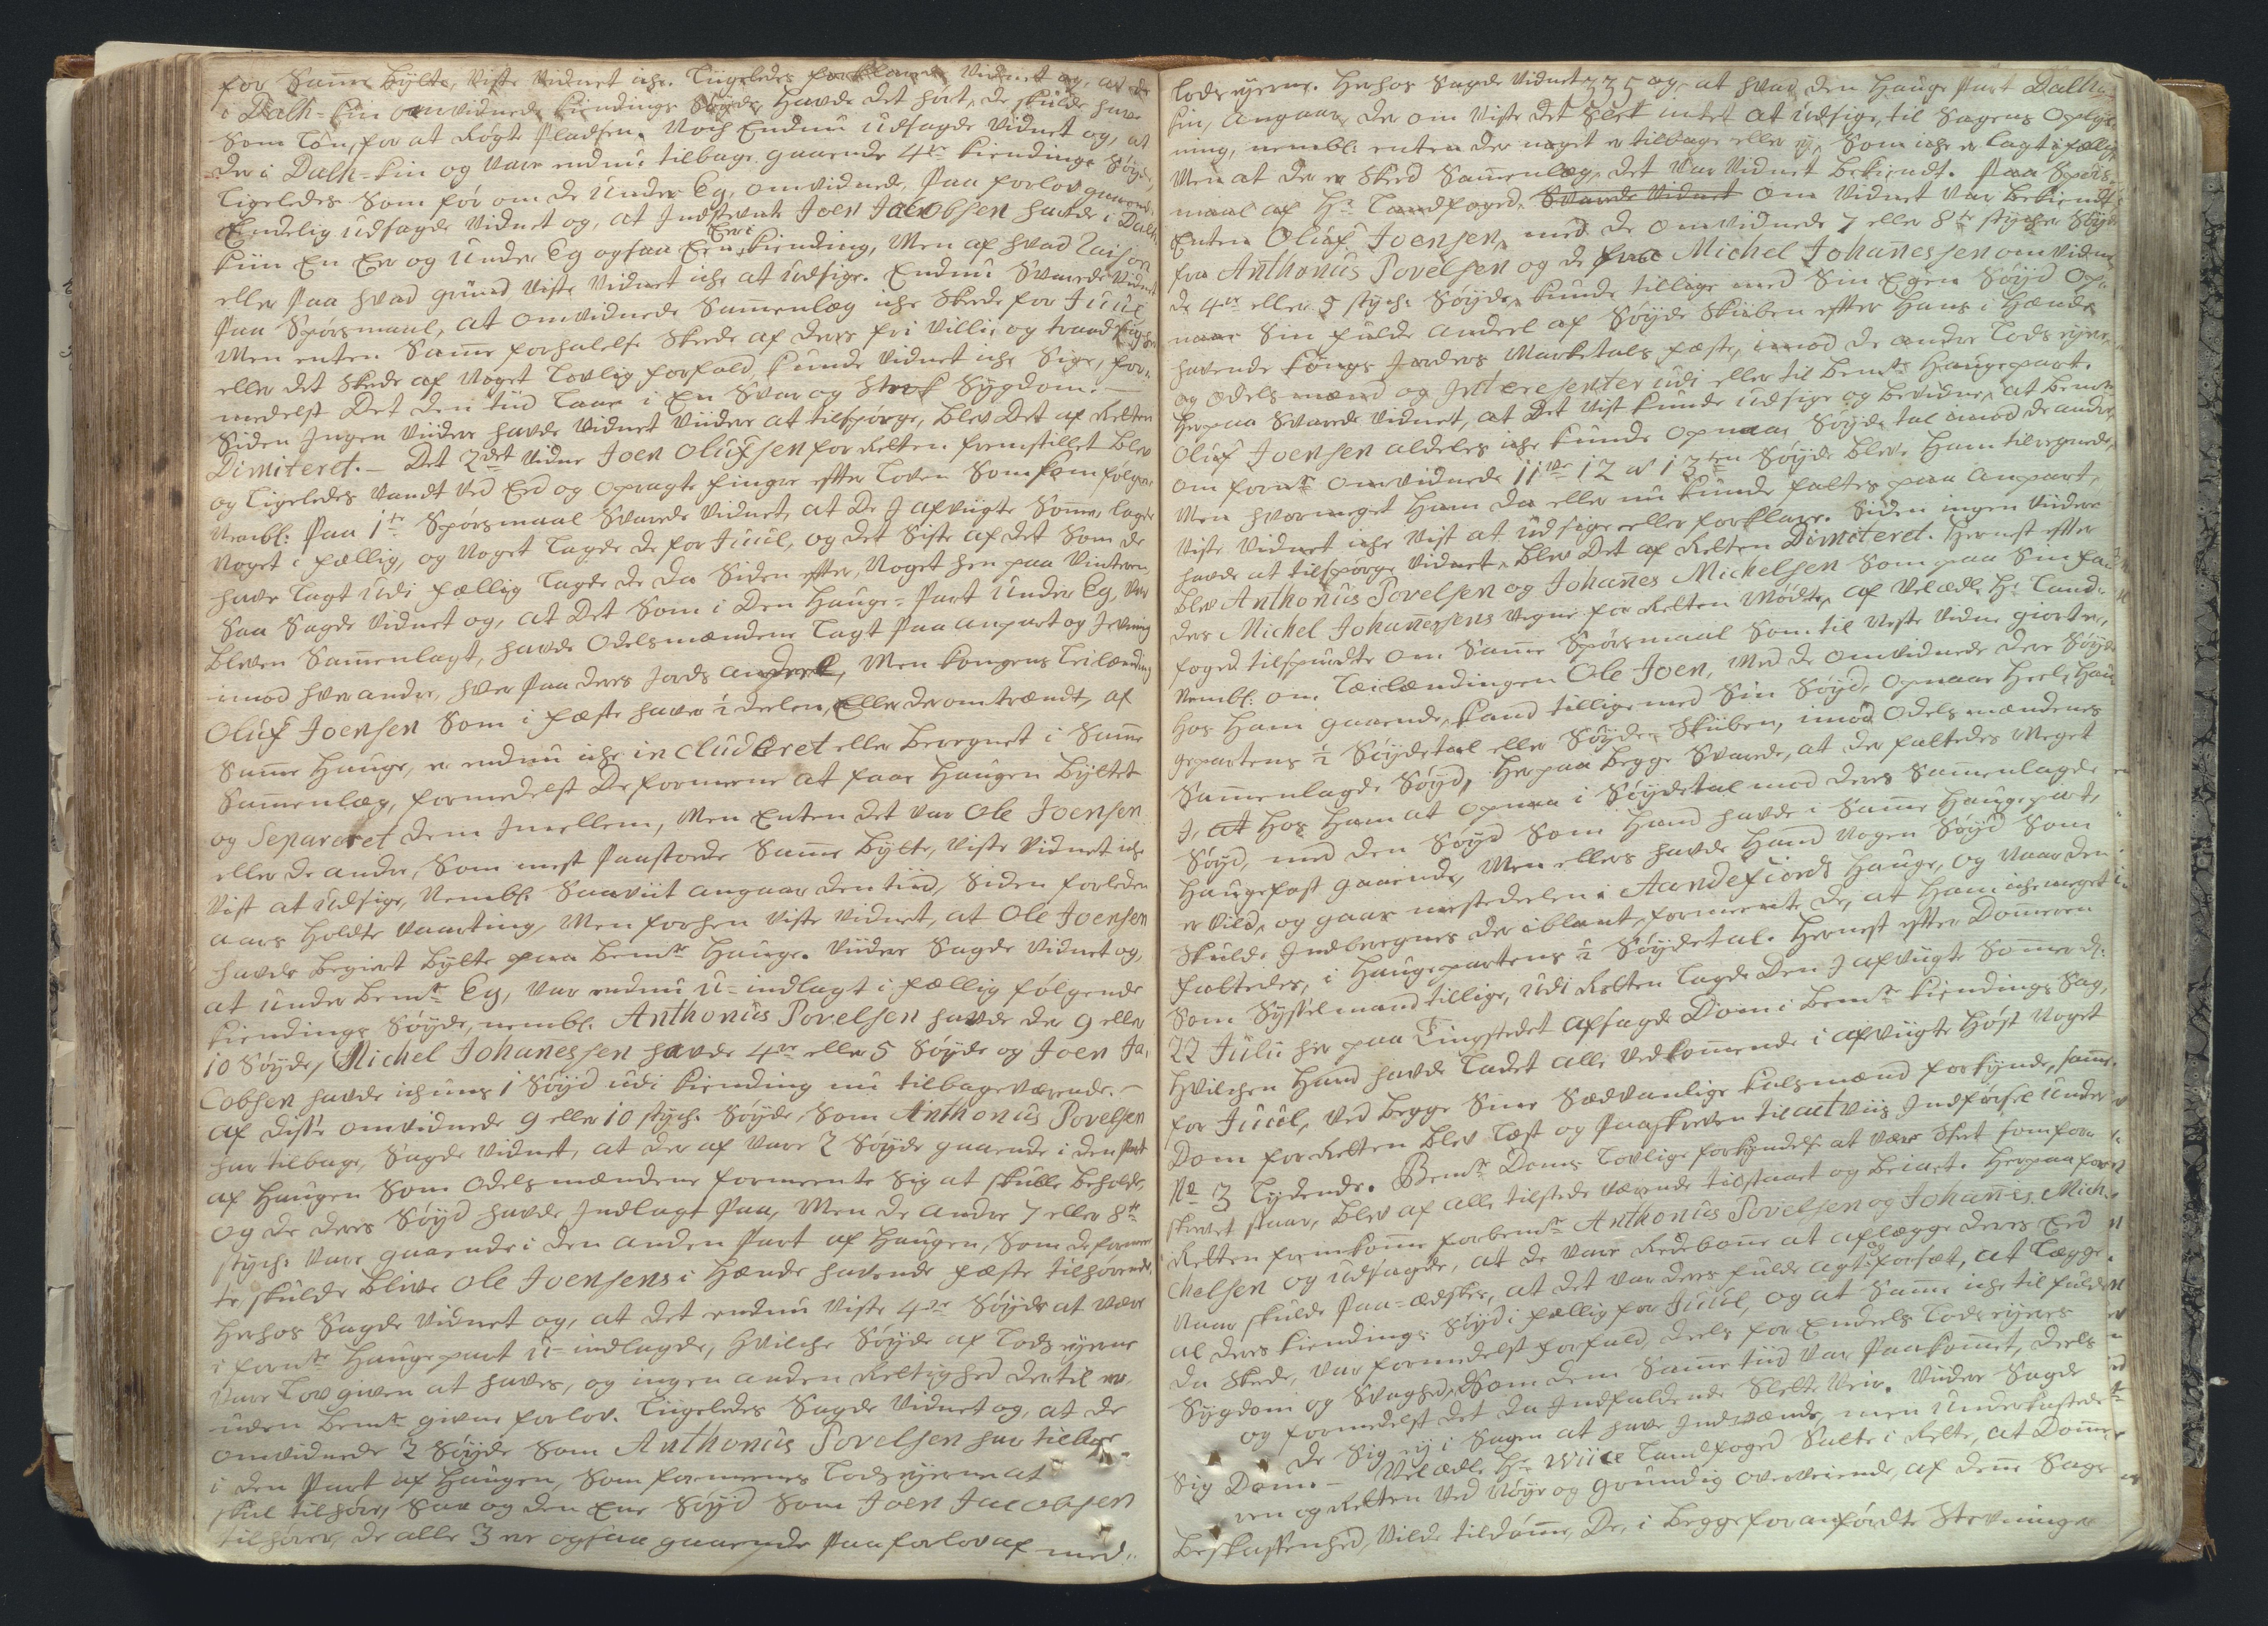 for Samme Bÿlte, Viste Vidnet iche. Liigeledes forklarede Vidnet og, at de
i Dalh-kin omvidnede kiendings Søyde, Havde det hørt, de skulde have
Som Løn, for at Røgte Pladsen. Noch Endnu Udsagde Vidnet og, at
der i Dalh-kin og Vare endnu tilbage gaaende 4re kiendings Søyde,
Ligeledes Som før om de Under Eg, omvidnede, Paa forlov gaaende.
Endelig Udsagde Vidnet og, at Indstevnte Joen Jacobsen havde i Dalh
kiin En Eer og Under Eg ogsaa Een Eeer kiending, Men af hvad Raison
eller Paa hvad grund Viste Vidnet iche at Udsige. Endnu Svarede Vidnet
Paa Spørsmaal, at omvidnede Sammenlæg iche Skede for Juul,
Men enten Samme forhalelse Skede af deres fri Villie og traadsighed
eller det Skede af Noget Lovlig forfald, kunde Vidnet iche Sige, for-
medelst Det den tiid Laae i En Svar og Sterk Sygdom.-
Siden Ingen Viidere havde Vidnet Viidere at tilspørge, blev det af Retten
Dimiteret.- Det 2det Vidne Joen Olufsen for Retten fremstillet blev
og Ligeledes Vandt Ved Eed og opragte fingre efter Loven Som følger
Nembl: Paa 1te Spørsmaal Svarede Vidnet, at De I afvigte Sommer lagde
Noget i fællig, og Noget Lagde de for Juul, og det Siste af det Som de
have Lagt Udi fællig Lagde de da Siden efter, Noget hen paa Vinteren,
Saa Sagde Vidnet og, at Det Som i Den Hauge-Part Under Eg, Var
bleven Sammenlagt, havde Odelsmændene Lagt Paa anpart og Jevning
imod hver andre, hver Paa deres Jords andeel, Men kongens Leilænding
Oluf Joensen Som i fæste haver ½ deelen, Eller deromtrændt, af
Samme Hauge, er endnu iche includeret eller beregnet i Samme
Sammenlæg, formedelst De formeene at faae Haugen bÿltet
og Separeret dem Imellem, Men Enten det var Ole Joensen
eller de andre, Som mest Paastoede Samme bÿlte, Viste Vidnet iche
Vist at Udsige, Nembl: Saaviit angaar den tiid, Siden forleden
aars Holdte Vaarting, Men forhen Viste Vidnet, at Ole Joensen
havde begiert bÿlte paa bemte Hauge. Viidere Sagde Vidnet og,
at Under bemte Eg, Var endnu U-indlagt i fællig følgende
kiendings Søyde, nembl. Anthonius Povelsen havde der 9 eller
10 Søyde, Michel Johanessen havde 4re eller 5 Søyde og Joen Ja-
cobsen havde ichuns 1 Søyd udi kiending nu tilbageværende.-
af disse omvidnede 9 eller 10 stych: Søyde, Som Anthonius Povelsen
har tilbage, Sagde Vidnet, at der af Vare 2 Søyde gaaende i den Part
af Haugen Som Odelsmændene formeente Sig at skulle beholde,
og de deres Søyd havde Indlagt Paa, Men de andre 7 eller 8te
stych: Vare gaaende i den anden Part af Haugen, Som de formeen
te skulde blive Ole Joensens i Hænde havende fæste tilhørende,
Herhos Sagde Vidnet og, at det endnu Viste 4re Søyde at være
i formte Haugepart U-indlagde, Hvilche Søyde af Lods eyerne
Vare Lov given at haves, og ingen anden Rettighed dertil er,
uden bemte givne forlov. Liigeledes Sagde Vidnet og, at de
omvidnede 2 Søyde Som Anthonius Povelsen har tilbage
i den Part af Haugen, Som formeenes Lodseyerne at
skal tilhøre, Saa og den Ene Søyd Som Joen Jacobsen
tilhører, de alle 3 er ogsaa gaaende Paa forlov af med-
Lods eyerne. Herhos Sagde Vidnet og, at hvad den Hauge Part Dalh-
kin, angaar, der om Viste det Slet intet at Udsige, til Sagens Oplÿs-
ning, nembl: enten der noget er tilbage eller ej, Som iche er Lagt i fællig
Men at der er Skeed Sammenlæg, det Var Vidnet bekiendt. Paa Spørs-
maal af Hr Landfoged, Svarede Vidnet Om Vidnet Var bekiendt
Enten Oluf Joensen, med de omvidnede 7 eller 8te stycher Søyde
fra Anthonius Povelsen og de fra Michel Johanessen omvidne
de 4re eller 5 stych: Søyde, kunde tillige med Sin Egen Søyd Op-
naae Sin fulde andeel af Søyde Skiiben efter Hans i Hænde
havende kongs Jorders Marketals fæste, imod de andre Lods eyere
og Odelsmænd og Interesenter udi eller til bemte Haugepart.
Herpaa Svarede Vidnet, at det Vist kunde Udsige og bevidne, at bemte
Oluf Joensen aldeles iche kunde Opnaae Søyde tal imod de andre,
Om formte omvidnede 11ve 12 a 13ten Søyde blev Ham tilregnede,
Men hvormeget Ham da eller nu kunde fattes paa Anpart,
Viste Vidnet iche Vist at Udsige eller forklare. Siden ingen Viidere
havde at tilspørge Vidnet, blev det af Retten Dimiteret. Hernest efter
blev Anthonius Povelsen og Johannes Michelsen Som paa Sin fa-
ders Michel Johannessens Vegne for Retten Mødte, af Velædle Hr Land-
foged tilspurdte om Samme Spørsmaal Som til Neste Vidne giorte,
Nembl: om Leilændingen Ole Joen, Med de omvidnede dere Søyde
Hos Ham gaaende, kand tillige med Sin Søyd, opnaae Heele Hau
gepartens ½ Søydetal eller Søyder Skiiben, imod Odelsmændenes
Sammenlagde Søyd, Herpaa begge Svarede, at der fattedes Meget
I, at Hos Ham at opnaa i Søydetal mod deres Sammenlagde
Søyd, med den Søyd Som Hand havde i Samme Haugepart,
Haugefast gaaende, Men ellers havde Hand Nogen Søyd Som
er Vild, og gaar mestedeelen i Aandefiords Hauge, og Naar den
Skulde Indberegnes der iblant, formeente de, at Ham iche meget
fattedes, i Haugepartens ½ Søydetal. Hernest efter Dommeren
Som Sysselmand tillige, Udi Retten Lagde Den I afvigte Sommer d:
22 Julii her paa Tingstedet afsagde Dom i bemte kiendings Sag,
Hvilchen Hand havde Ladet alle Vedkommende i afviigte Høst Noget
for Juul, Ved begge Sine Sædvanlige kalsmænd forkÿnde, samme
Dom for Retten blev Læst og Paaskreven til act viis Indførsel Under
No 3 Lydende. Bemte Doms Lovlige forkyndelse at være Skeet som for
skrevet staar, blev af alle tilstede værende tilstaaet og beiaet. Herpaa for
Retten fremkomme forbemte Anthonius Povelsen og Johannis Mich-
chelsen og Udsagde, at de Vare Redebone at aflægge deres Eed
Naar skulde Paa-ædskes, at det var deres fulde agt og forsæt, at Lægge
al deres kiendings Søyd i fællig for Juul, og at Samme iche til fulde
da Skede, Var formedelst forfald, deels for Endeels Lods eyeres
Sygdom og Svaghed, Som dem Samme tiid Var Paakommet, deels
og formedelst det da Indfaldende Slette Veir. Viidere Sagde
de Sig ej i Sagen at have Indvænde, men Underkastede
Sig Dom.- Velædle Hr Wiice Landfoged Satte i Rette, at Domme-
ren og Retten Ved Nøye og Grundig Overveiende, af denne Sags
Beskaffenhed, Vilde tildømme, De, i begge foranførdte Stevninger